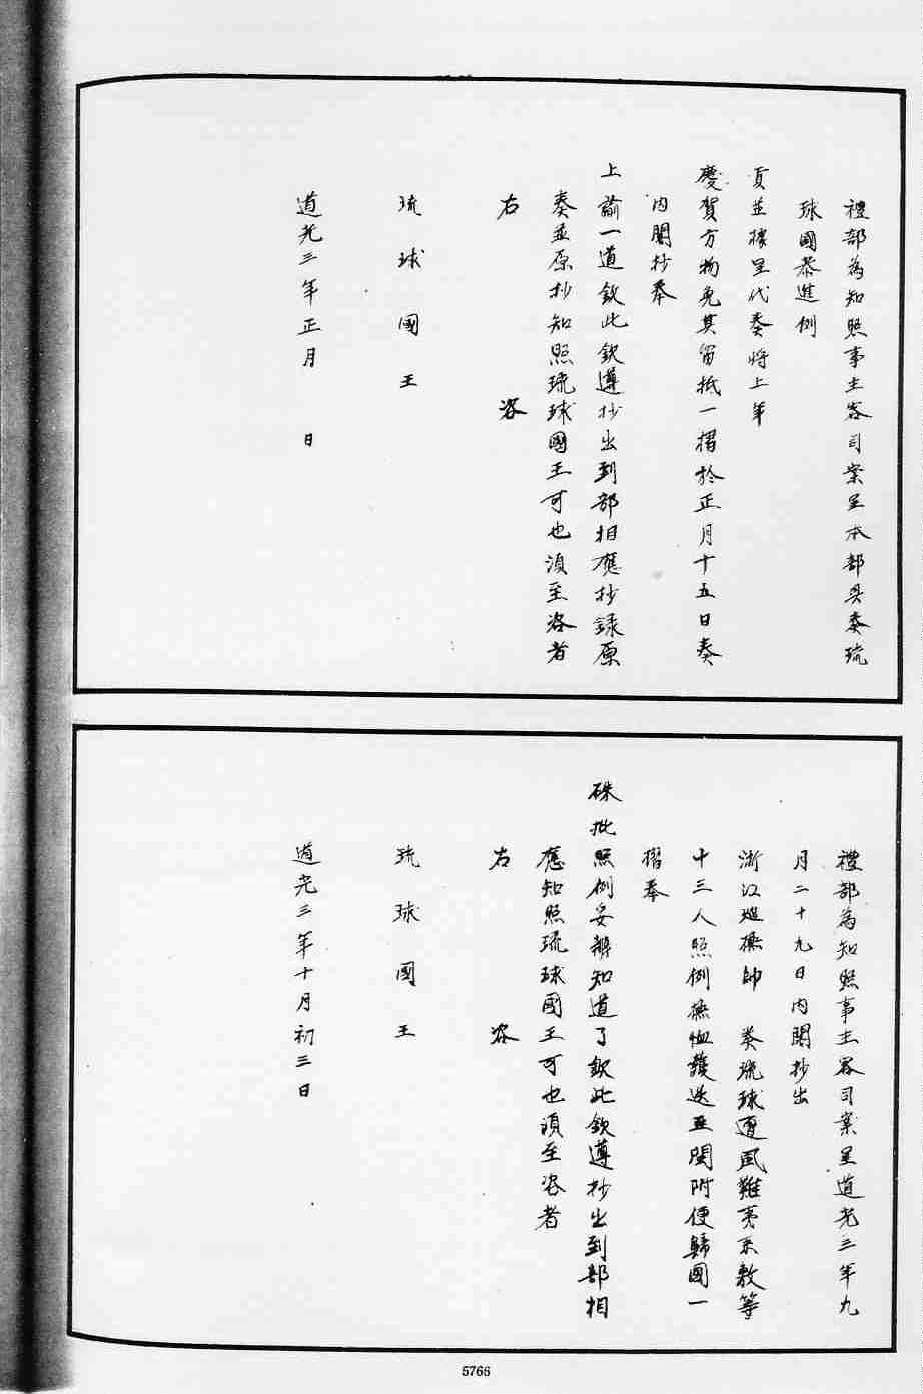 禮部為知照事主客司案呈本部具奏琉
球國恭進例
貢並據呈代奏將上年
慶賀方物免其留抵一摺於正月十五日奏
內閣抄奉
上諭一道欽此欽遵抄出到部相應抄錄原
奏並原抄知照琉球國王可也須至咨者
右 咨
琉球國王
道光三年正月 日
禮部為知照事主客司案呈道光三年九
月二十九日內閣抄出
浙江巡撫帥 奏琉球遭風難夷 等
十三人照例撫恤護送至閩附便歸國一
摺奉
硃批照例妥辦知道了欽此欽遵抄出到部相
應知照琉球國王可也須至咨者
右 咨
琉球國王
道光三年十月初三日
5766